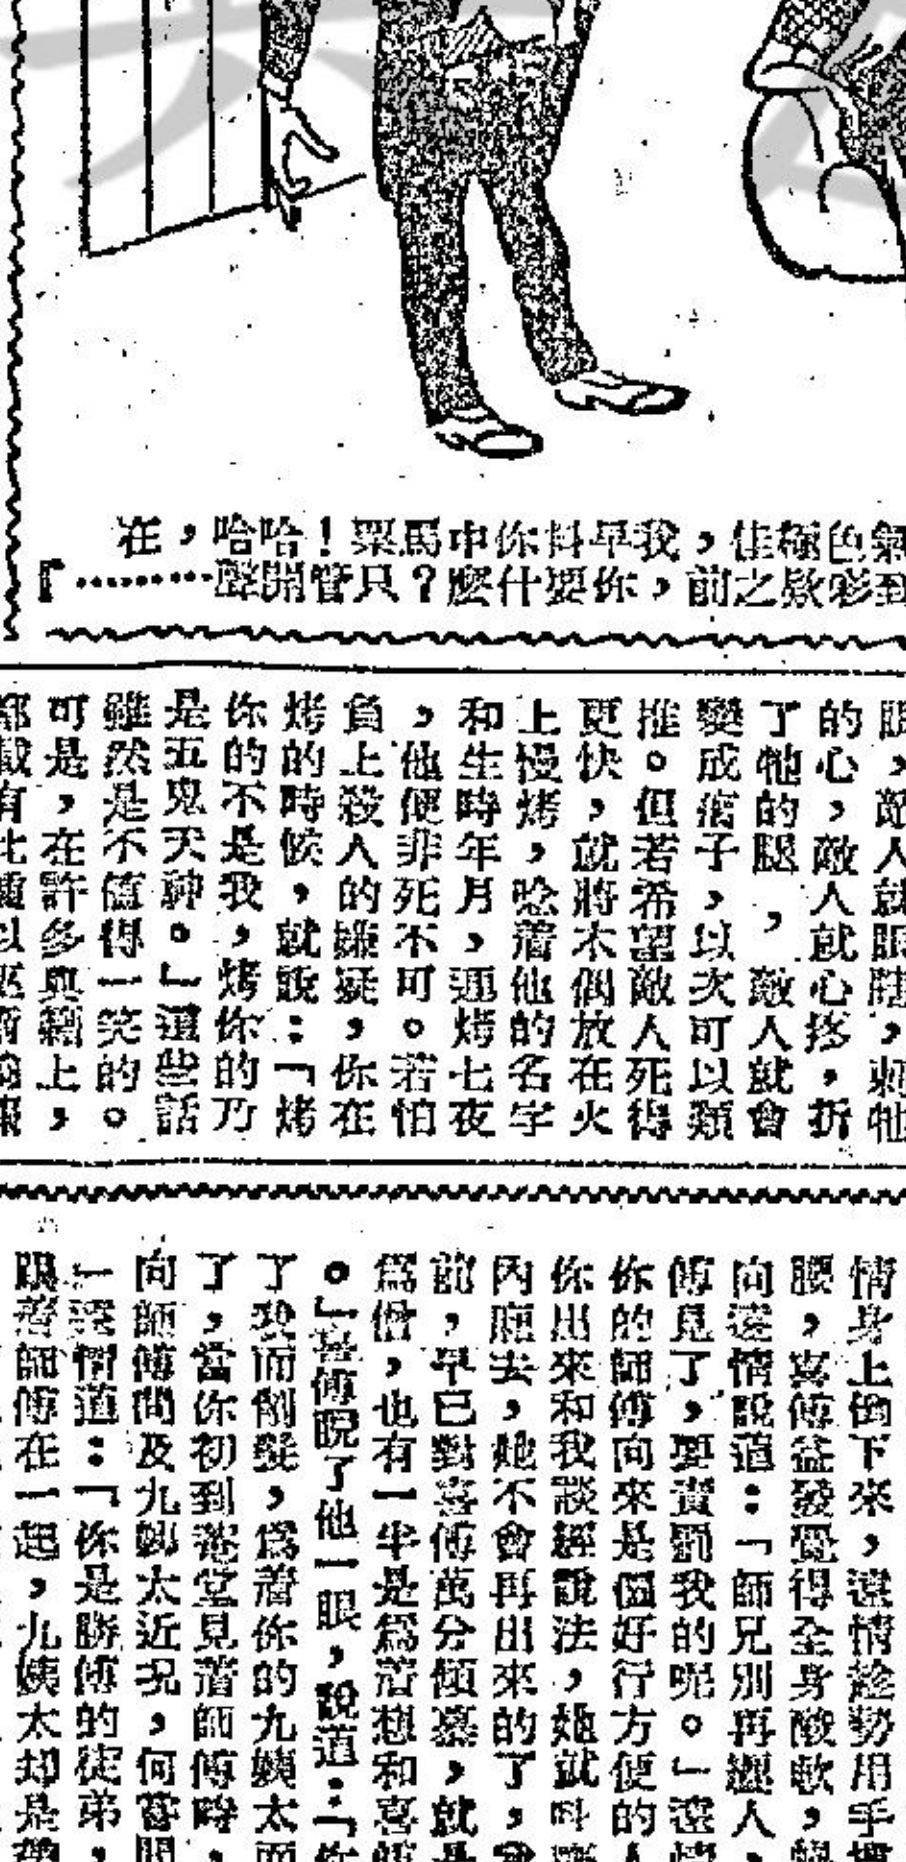 氣色極佳，我早料你中馬票！哈哈，在
到彩欵之前，你要什麼？只管開聲………』
眼，敵人就眼瞎，刺牠
的心，敵人就心疼，折
了牠的腿，敵人就會
變成瘸子，以次可以類
推。但若希望敵人死得
更快，就將木偶放在火
上慢烤，唸着他的名字
和生時年月，連烤七夜
，他便非死不可。若怕
負上殺人的嫌疑，你在
烤的時候，就說：「烤
你的不是我，烤你的乃
是五鬼天神。」這些話
雖然是不值得一笑的。
可是，在許多典籍上，
都載有此
情身上倒下來，遠情趁勢用手
腰，喜傅益發覺得全身酸軟，
向遠情說道：「師兄別再纏人，
傅見了，要責罰我的呢。」遠情
你的師傅向來是個好行方便的人
你出來和我談經說法，她就叫
內廳去，她不會再出來的了，
前，早已對喜傅萬分傾慕，就是
爲僧，也有一半是爲着想和喜傅
。」喜傅睨了他一眼，說道：「你
了我而削髮，爲着你的九姨太而
了，當你初到菴堂見着師傅時，
向師傅問及九姨太近況，何嘗問
」遠情道：「你是勝傅的徒弟，
跟着師傅在一起，九姨太却是